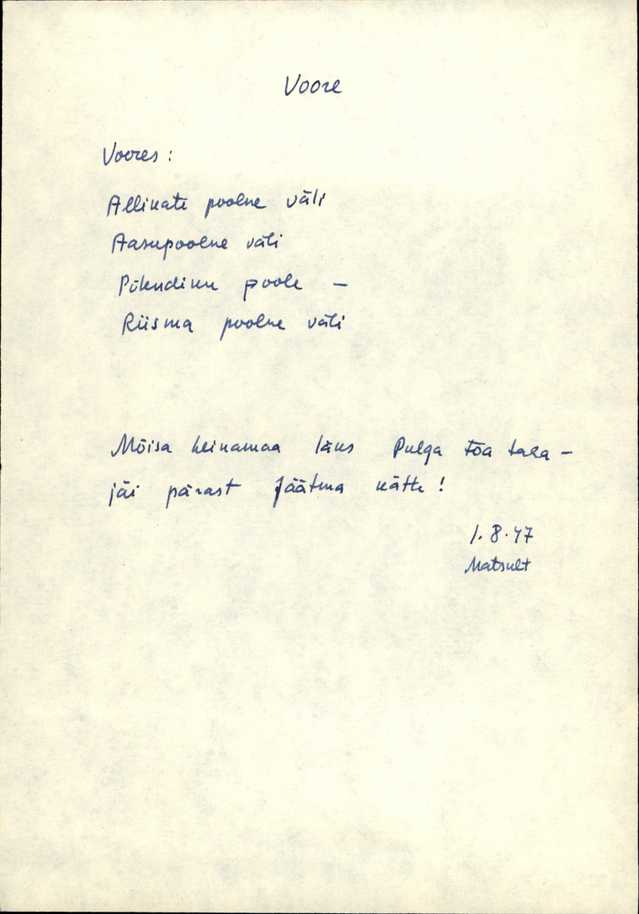 Voore
Voores:
Allikate poolne väli
Aasupoolne väli
Põhendiku poole —
Riisma poolne väli
Mõisa heinamaa läks Pulga Tõa
jäi pärast Jäätma kätte!
1.8.47
Matsult